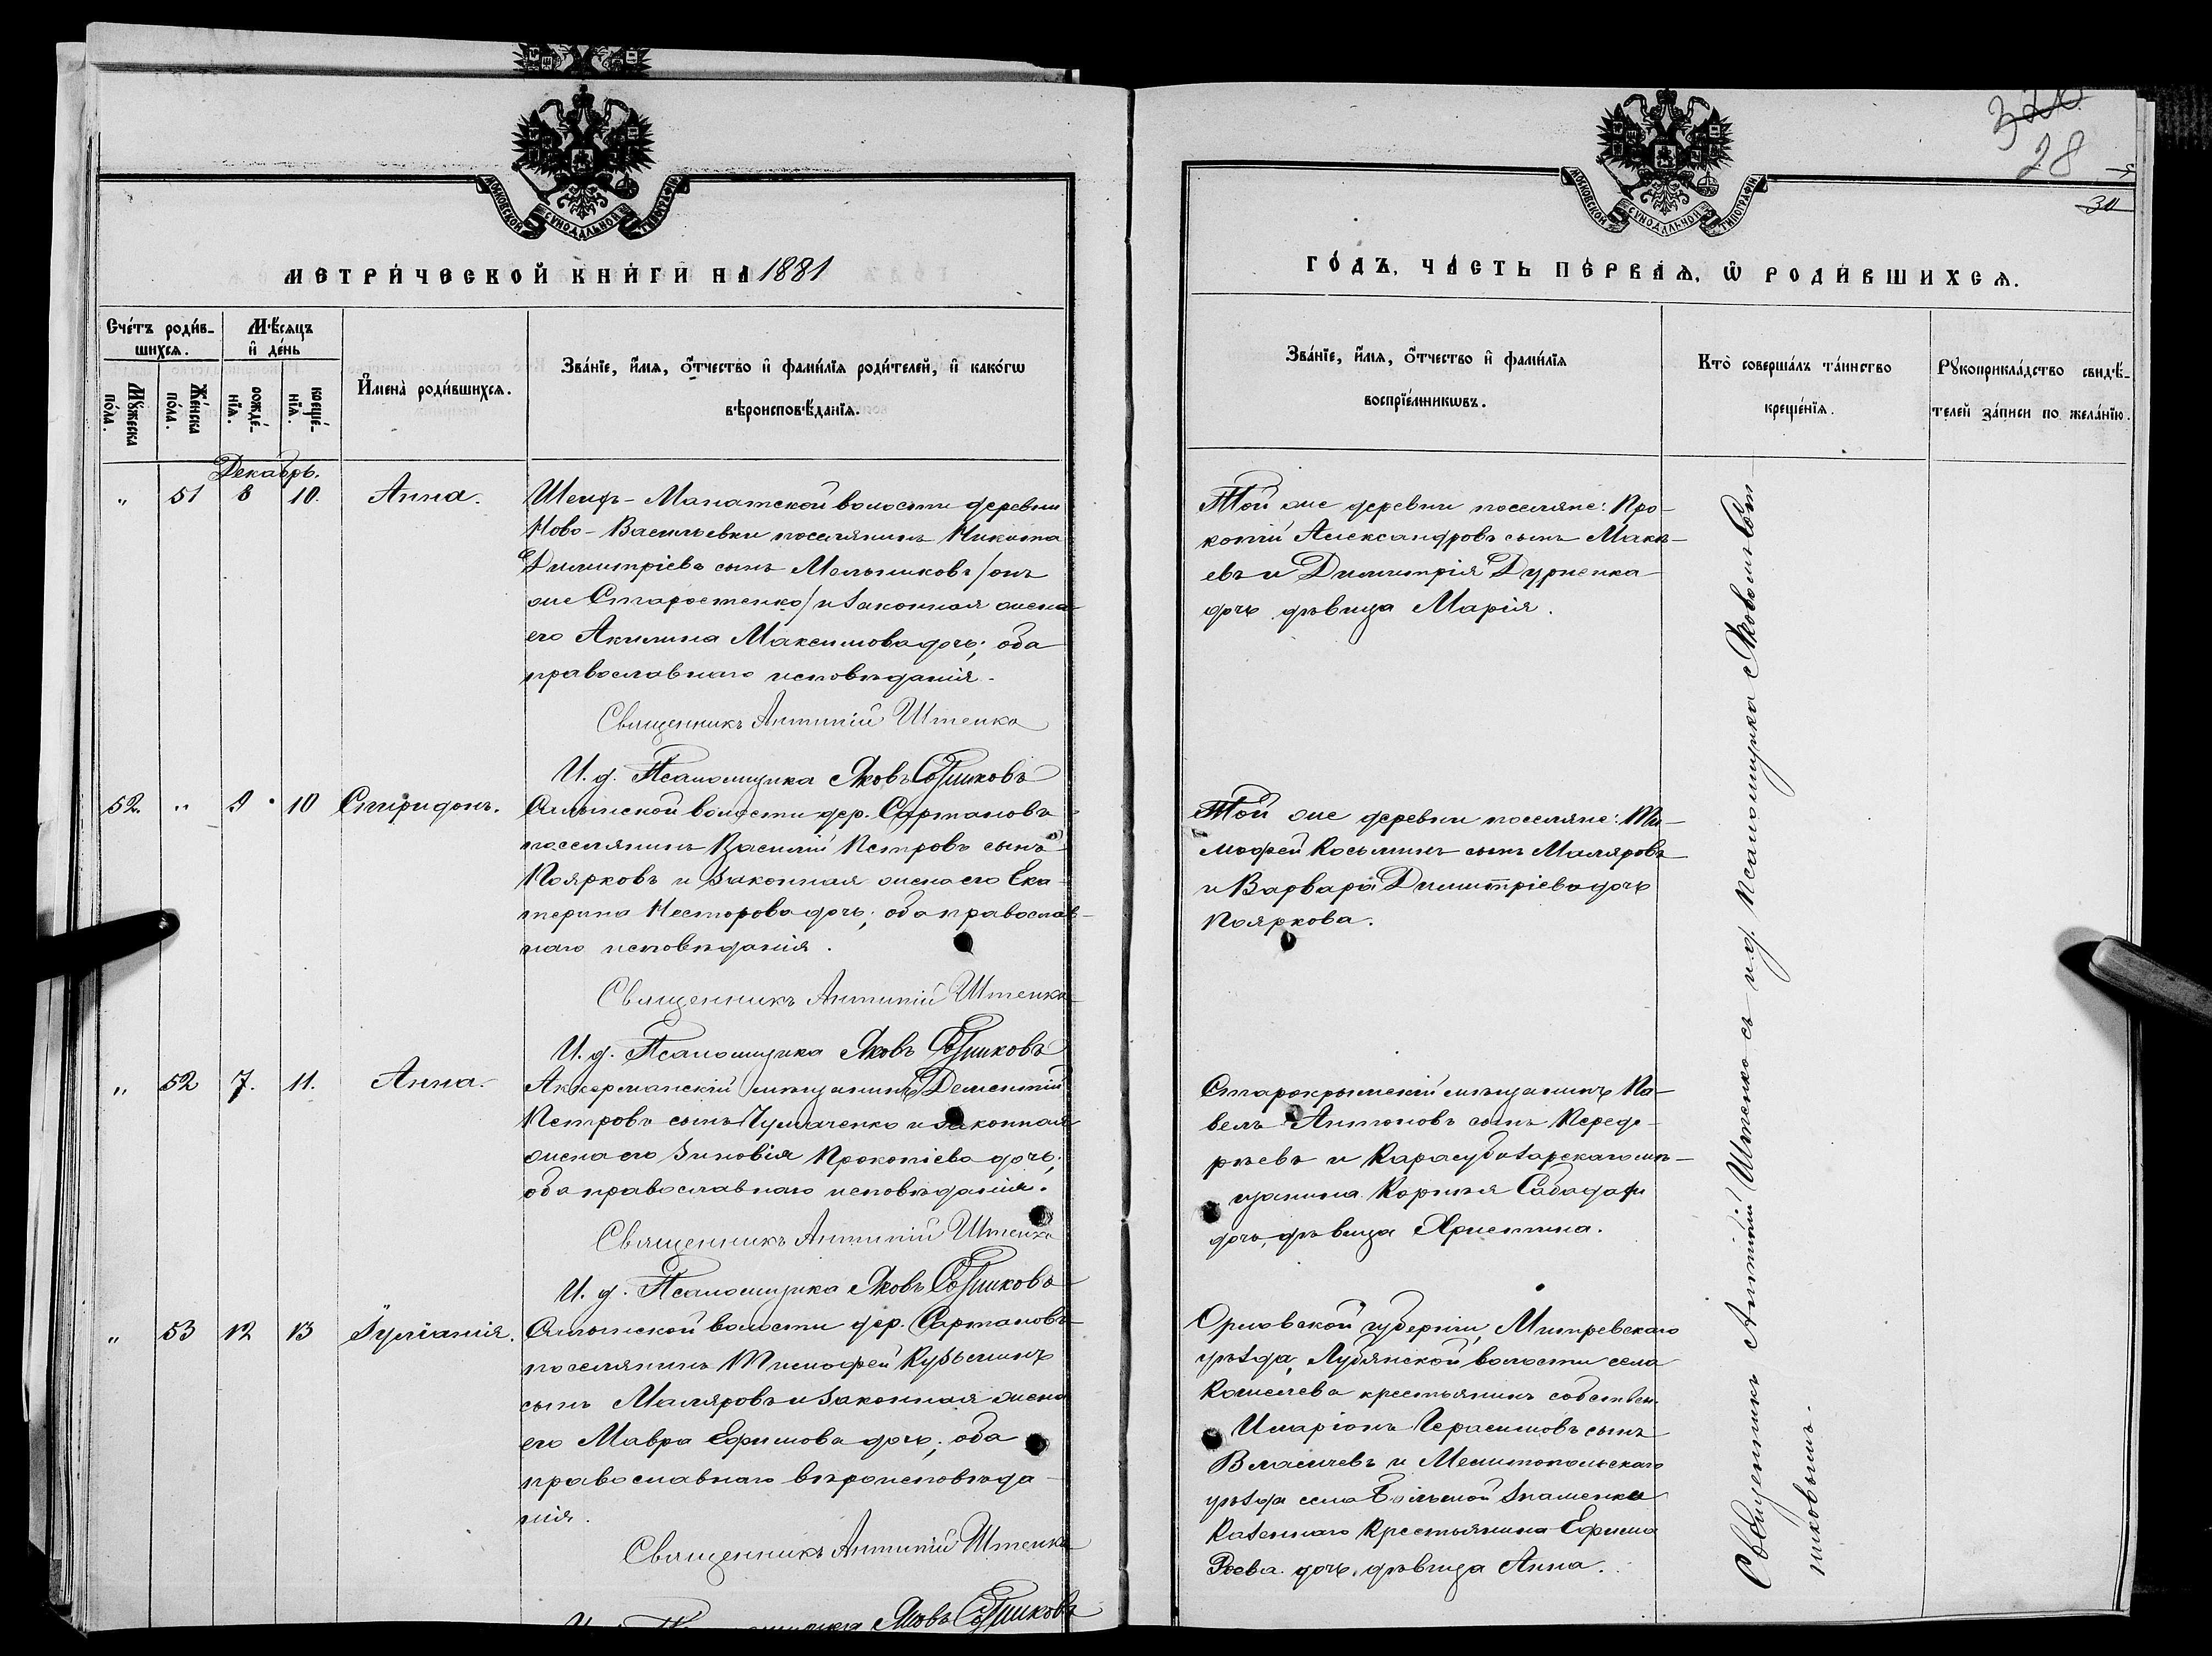 МОСКОВСКОЙ СѴНОДАЛЬНОЙ ТИПОГРАФІИ
МЕТРИ́ЧЕСКОЙ КНИ́ГИ НА 1881
Сче́тъ роди́в-
шихсѧ.
Мѣ́сяцъ
и҆ де́нь
Мꙋ́жеска
по́ла.
Же́нска
по́ла.
рожде́-
нїѧ.
креще́-
нїѧ.
И҆мена̀ роди́вшихсѧ.
Зва́нїе, и҆́мѧ, ѻ҆́тчество и҆ фами́лїѧ роди́телей, и҆ како́гѡ
вѣроисповѣ́данїѧ.
Декабрь.
„ 51 8 10. Анна.
Шеихъ-Манатской волости деревни
Ново-Васильевки поселянинъ Никита
Димитріевъ сынъ Мельниковъ /онъ
же Старостенко/ и законная жена
его Акилина Максимова дочь; оба
православнаго исповѣданія.
Священникъ Антипій Штенко
И. д. Псаломщика Яковъ Сотниковъ
52. „ 9 10 Спиридонъ.
Алминской волости дер. Сартановъ
поселянинъ Василій Петровъ сынъ
Поярковъ и законная жена его Ека-
терина Несторова дочь; оба православ-
наго исповѣданія.
Священникъ Антипій Штенко
И. д. Псаломщика Яковъ Сотниковъ
„ 52 7. 11. Анна.
Аккерманскій мѣщанинъ Дементій
Петровъ сынъ Чумаченко и законная
жена его Зиновія Прокопіева дочь;
оба православнаго исповѣданія.
Священникъ Антипій Штенко
И. д. Псаломщика Яковъ Сотниковъ
„ 53 12 13 Іуліанія.
Алминской волости дер. Сартановъ
поселянинъ Тимофей Кузьминъ
сынъ Маляровъ и законная жена
его Мавра Ефимова дочь; оба
православнаго вѣроисповѣда-
нія.
Священникъ Антипій Штенко
Яковъ Сотниковъ
28
30
МОСКОВСКОЙ СѴНОДАЛЬНОЙ ТИПОГРАФІИ
ГО́ДЪ, ЧА́СТЬ ПЕ́РВАѦ, Ѡ҆ РОДИ́ВШИХСѦ.
Зва́нїе, и҆́мѧ, ѻ҆́тчество и҆ фами́лїѧ
воспрїе́мникѡвъ.
Кто̀ соверша́лъ та́инство
креще́нїѧ.
Рꙋкоприкла́дство свидѣ́-
телей за́писи по жела́нїю.
Той же деревни поселяне: Про-
копій Александровъ сынъ Мака-
евъ и Димитрія Дурненка
дочь дѣвица Марія.
Той же деревни поселяне: Ти-
мофей Косьминъ сынъ Маляровъ
и Варвара Димитріева дочь
Пояркова.
Старокрымскій мѣщанинъ Па-
велъ Антоновъ сынъ Передѣ-
рѣевъ и Карасубазарскаго мѣ-
щанина Корнія Сабадаши
дочь, дѣвица Христина.
Орловской губерніи, Митревскаго
уѣзда, Лубянской волости села
Кошелева крестьянинъ собствен.
Иларіонъ Герасимовъ сынъ
Власичевъ и Мелитопольскаго
уѣзда села Большой Знаменки
Казеннаго Крестьянина Ефима
Роева дочь, дѣвица Анна.
Священникъ Антипій Штенко съ и.д. Псаломщика Яковомъ Сот
никовымъ.